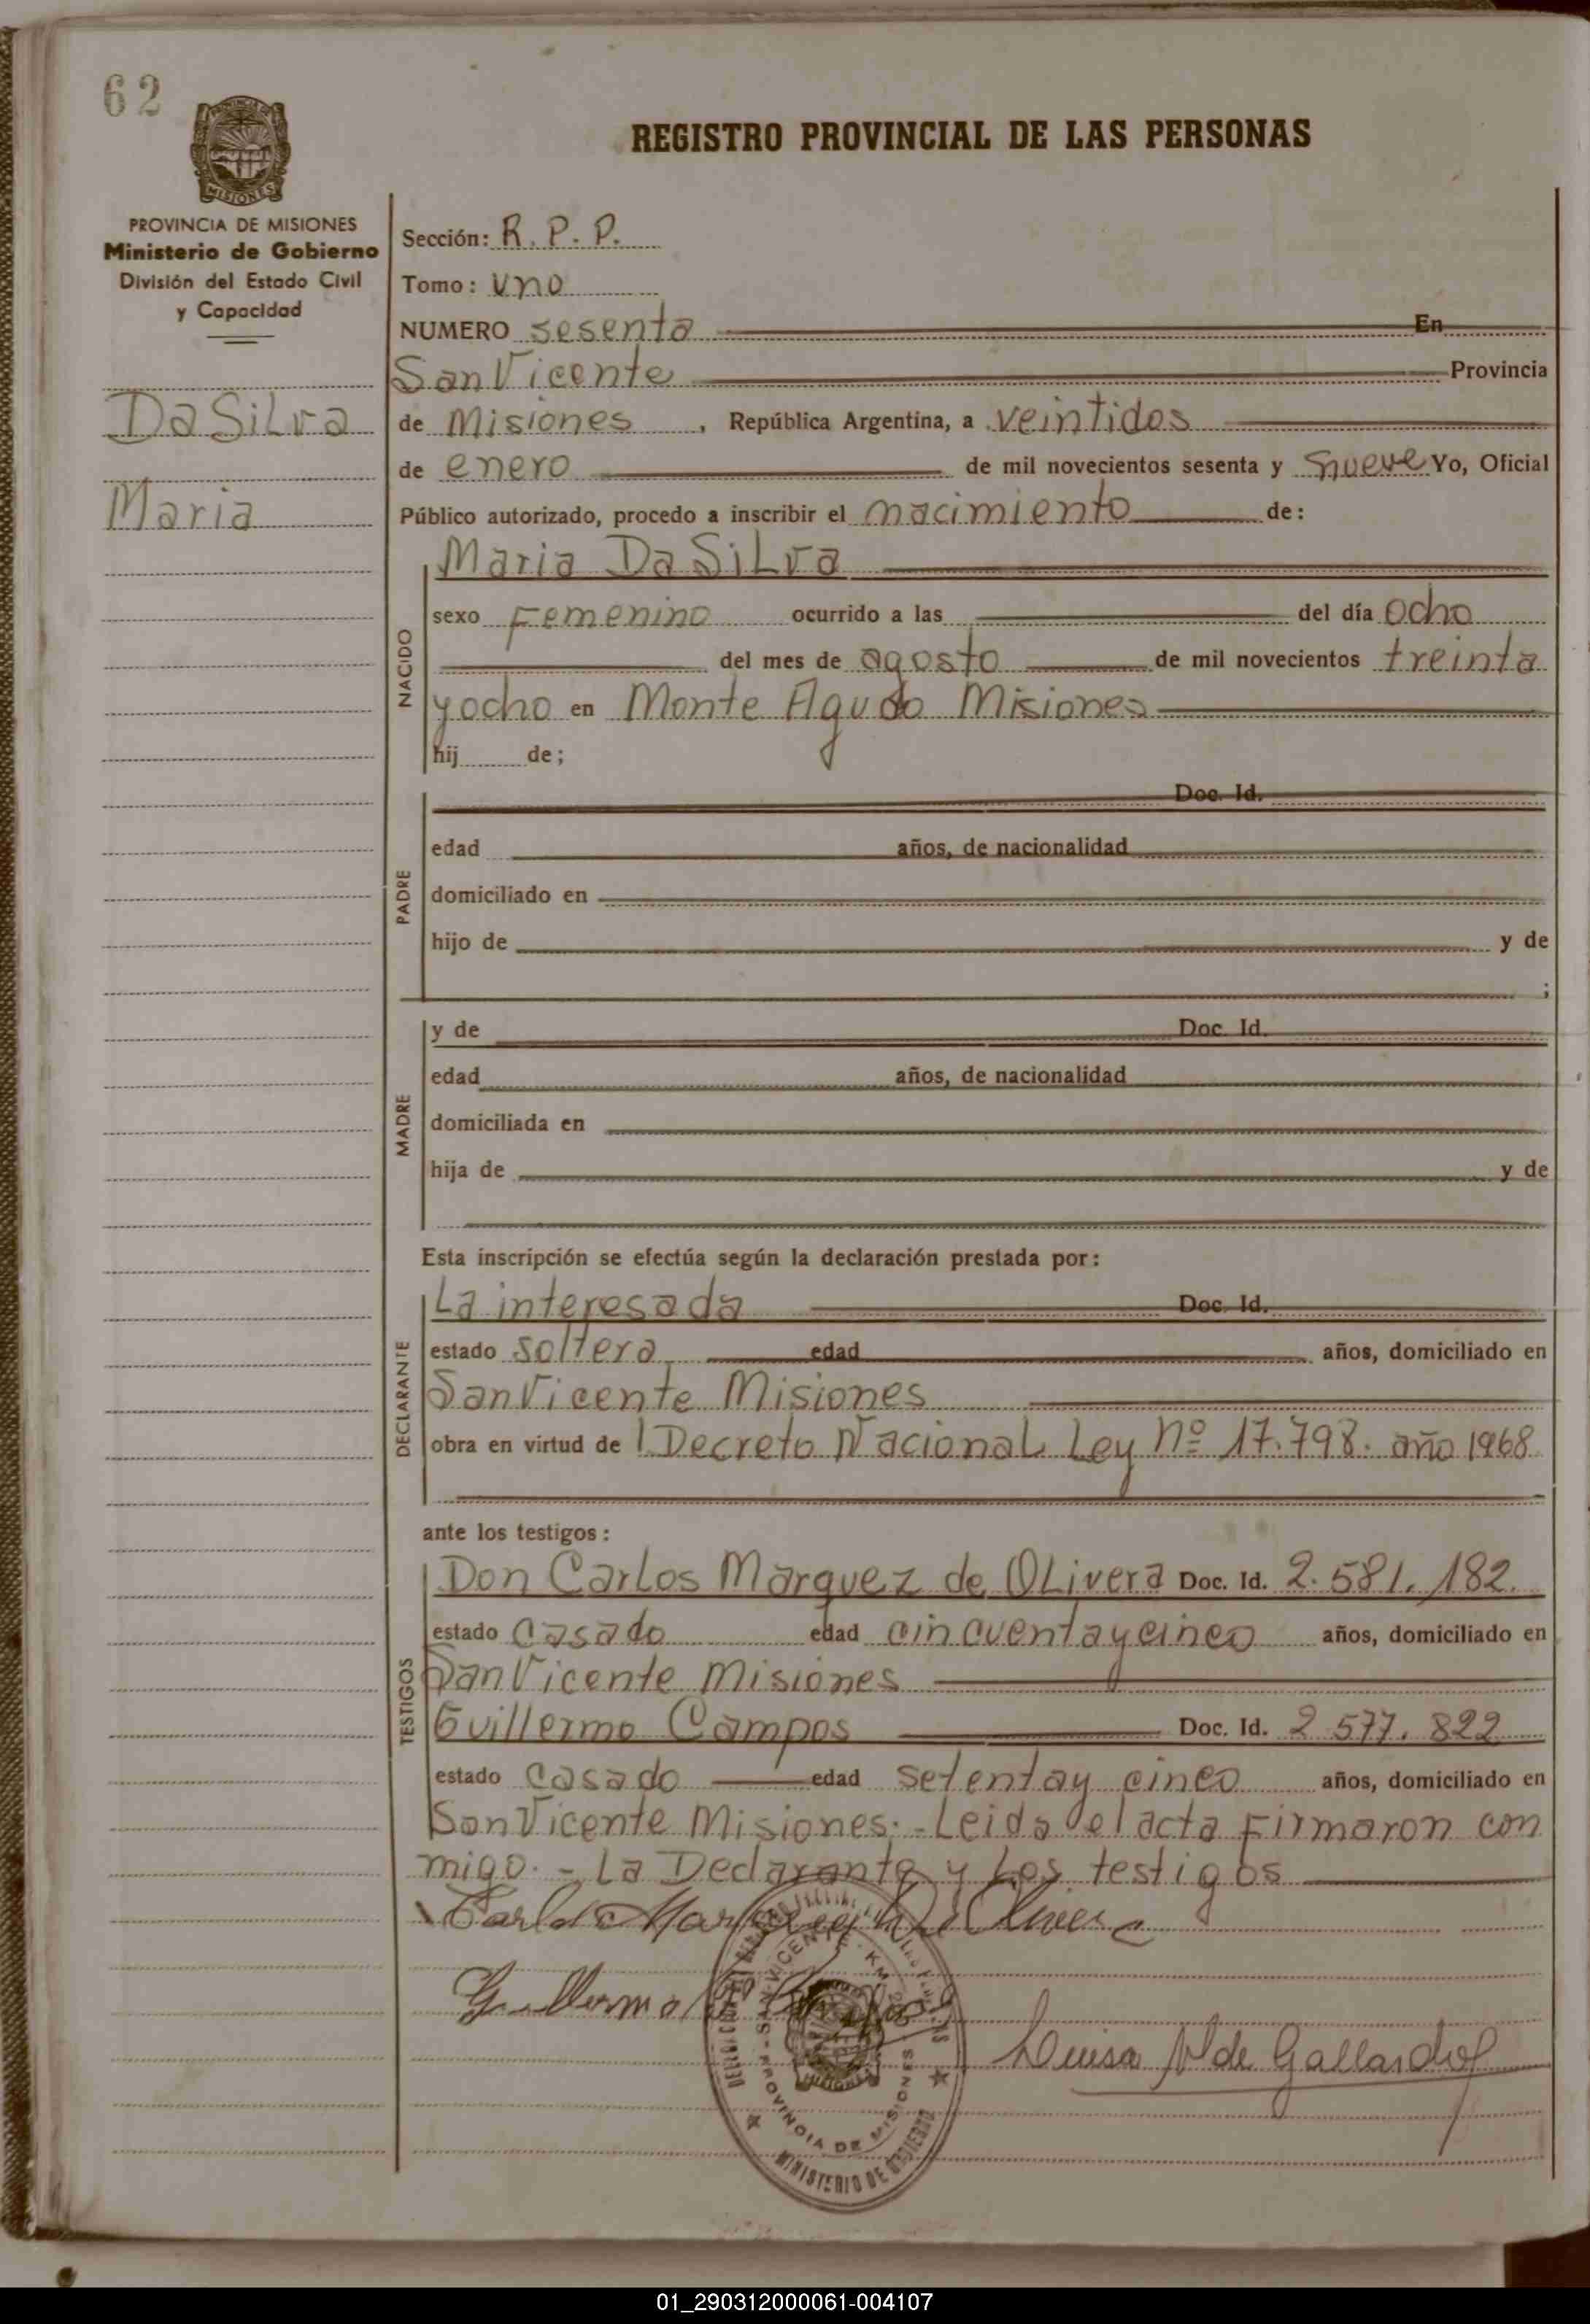 62
MISIONES
PROVINCIA DE MISIONES
Ministerio de Gobierno
División del Estado Civil
y Capacidad
Da Silva
Maria
REGISTRO PROVINCIAL DE LAS PERSONAS
Sección: R. P. P.
Tomo: uno
NUMERO sesenta En
San Vicente Provincia
de Misiones, República Argentina, a veintidos
de enero de mil novecientos sesenta y nueve Yo, Oficial
Público autorizado, procedo a inscribir el nacimiento de:
NACIDO
Maria Da Silva
sexo Femenino ocurrido a las del día ocho
del mes de agosto de mil novecientos treinta
y ocho en Monte Agudo Misiones
hij de;
PADRE
Doc. Id.
edad años, de nacionalidad
domiciliado en
hijo de y de
;
MADRE
y de Doc. Id.
edad años, de nacionalidad
domiciliada en
hija de y de
Esta inscripción se efectúa según la declaración prestada por:
DECLARANTE
La interesada Doc. Id.
estado soltera edad años, domiciliado en
San Vicente Misiones
obra en virtud de l Decreto Nacional Ley Nº 17.798. año 1968
ante los testigos:
TESTIGOS
Don Carlos Marquez de Olivera Doc. Id. 2.581.182.
estado Casado edad cincuentaycinco años, domiciliado en
San Vicente Misiones
Guillermo Campos Doc. Id. 2.577.822
estado Casado edad setentay cinco años, domiciliado en
San Vicente Misiones. - Leida el acta Firmaron con
migo. - La Declarante y Los testigos
Carlos Marquez de Olivera
Guillermo Campos
SAN VICENTE - KM
PROVINCIA DE MISIONES
MINISTERIO DE GOBIERNO
Luisa de Gallardo
01_290312000061-004107